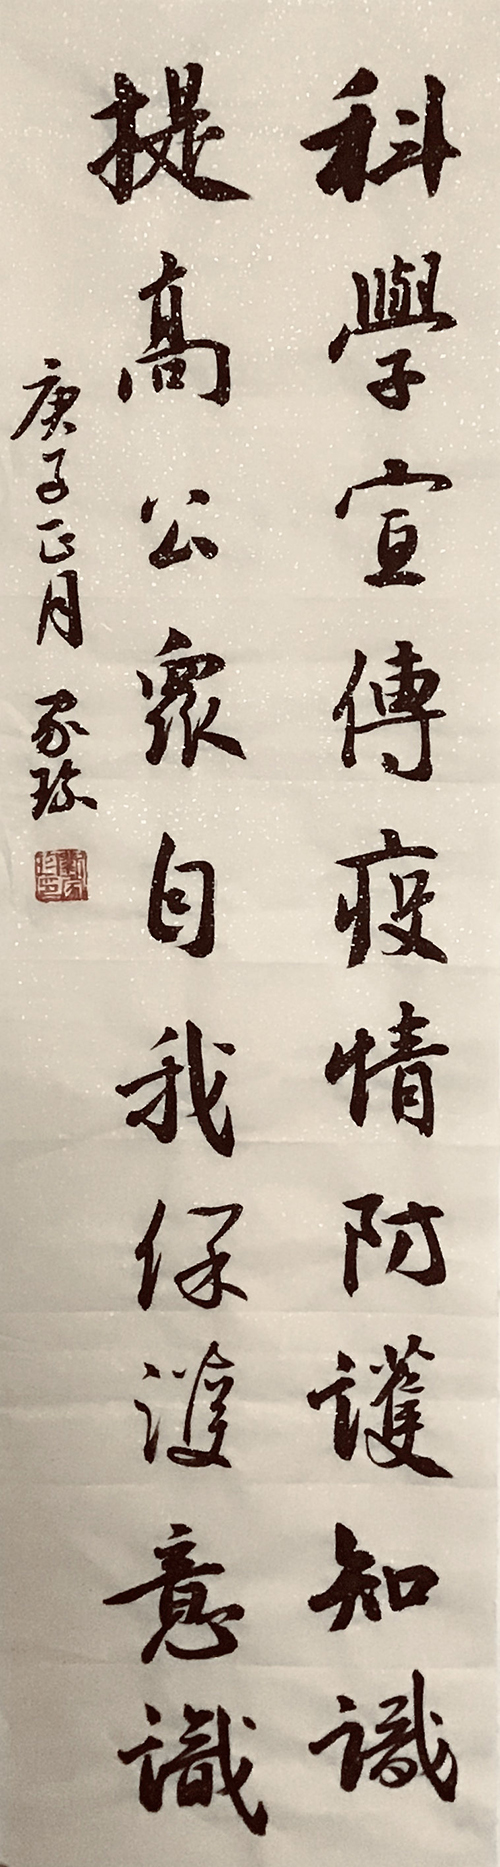 科學宣傳疫情防護知識
提高公眾自我保護意識
庚子正月 家珍